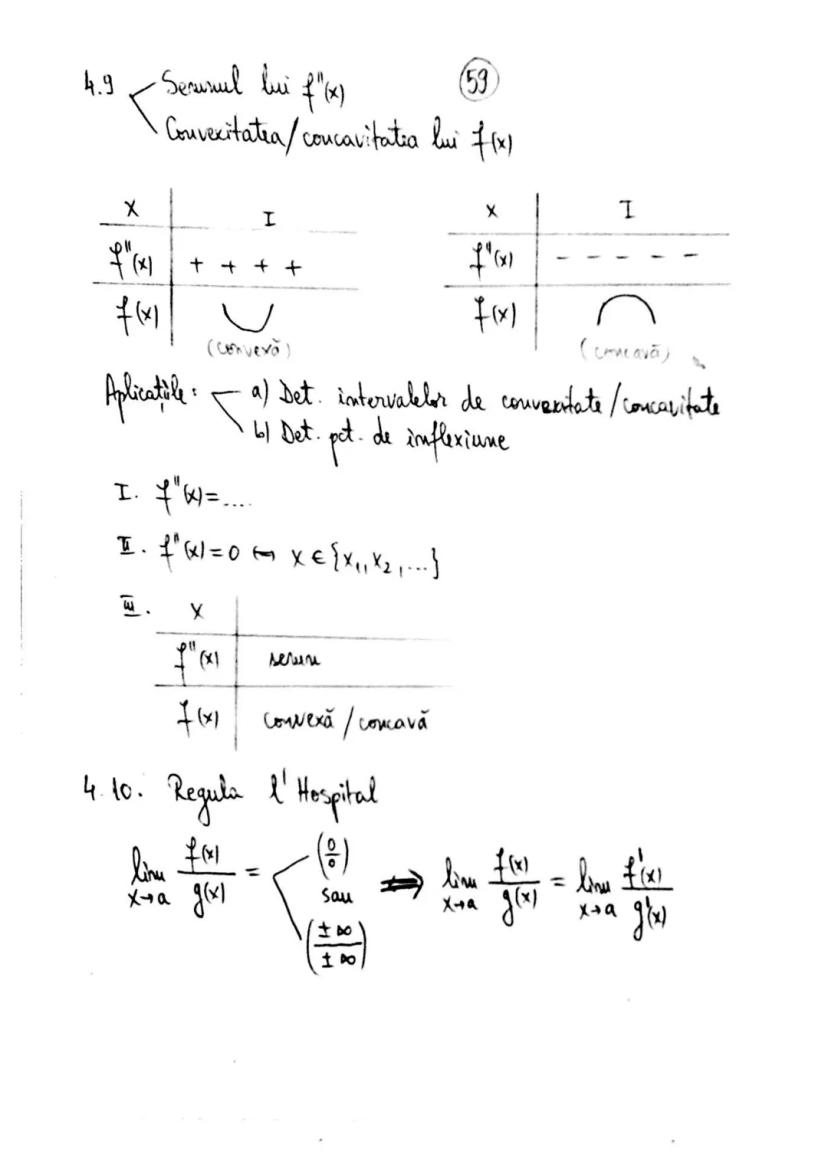 4.9 Semnul lui f''(x) 59
Convexitatea/concavitatea lui f(x)
x I
f''(x) + + + +
f(x)
(convexă)
x I
f''(x) - - - - -
f(x)
(concavă)
Aplicațiile: a) Det. intervalelor de convexitate/concavitate
b) Det. pct. de inflexiune
I. f''(x)=....
II. f''(x)=0 ↔ x ∈ {x₁, x₂, ...}
III. x
f''(x) semn
f(x) convexă / concavă
4.10. Regula l'Hospital
lim x→a f(x)/g(x) = (0/0) sau (±∞/±∞) ⇒ lim x→a f(x)/g(x) = lim x→a f'(x)/g'(x)